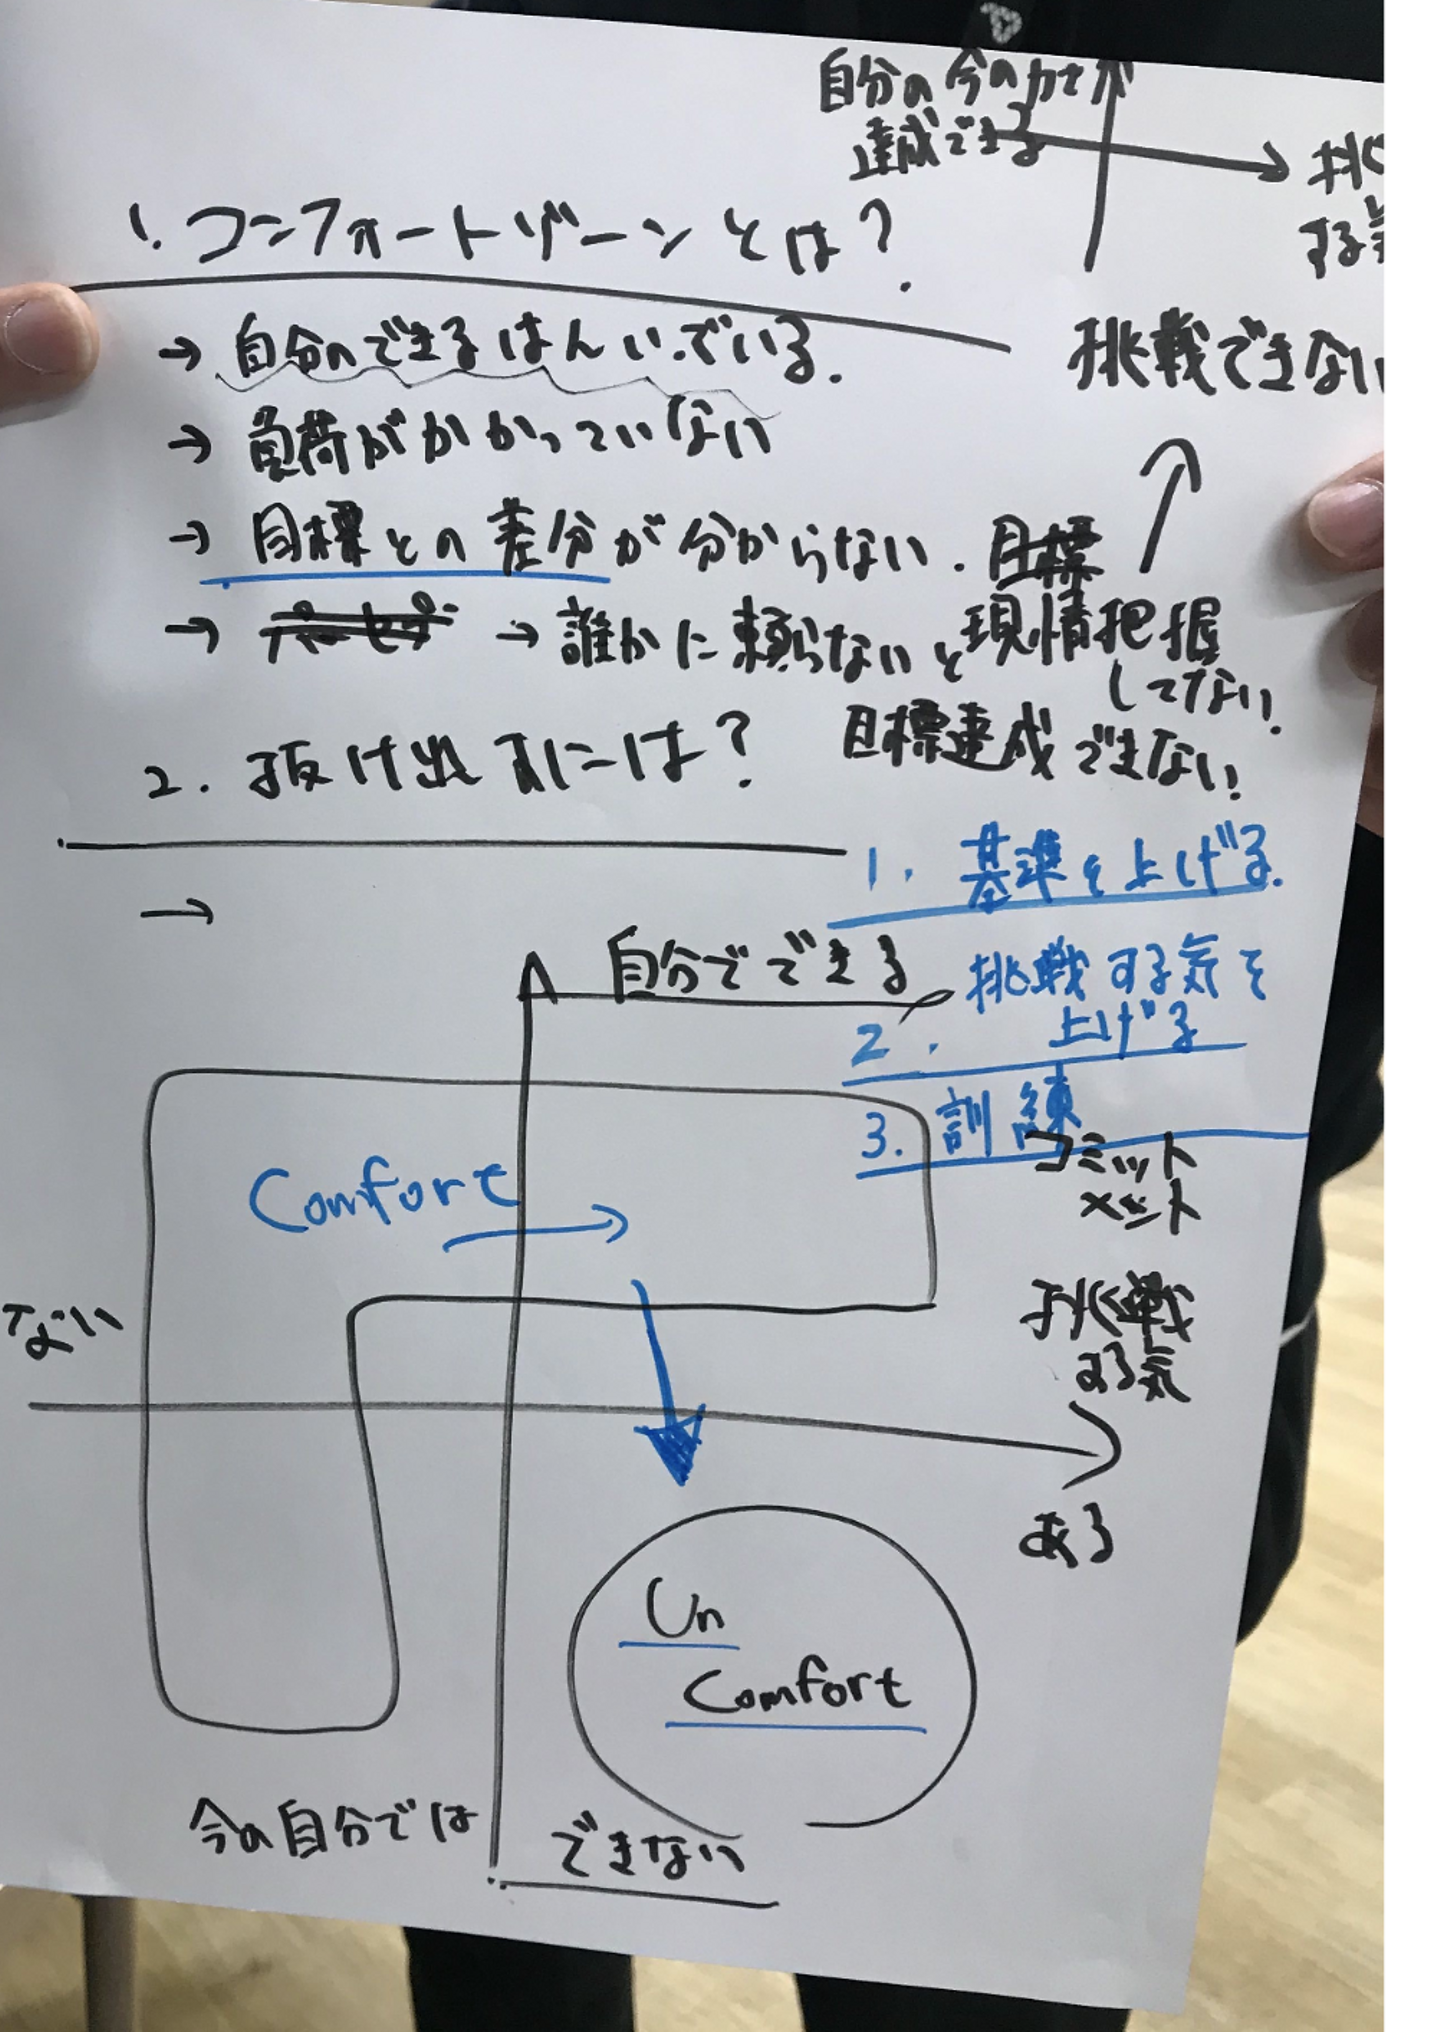 自分の今の力で
達成できる
挑
する気
1. コンフォートゾーンとは?
→ 自分のできるはんいでいる.
挑戦できない
→ 負荷がかかっていない
→ 目標との差分が分からない.
目標
現情把握
してない!
→ → 誰かに頼らないと
目標達成できない!
2. 抜け出すには?
→
1. 基準を上げる.
2. 挑戦する気を
上げる
3. 訓練
自分でできる
コミット
メント
Comfort
ない
挑戦
する気
ある
Un
Comfort
今の自分では
できない